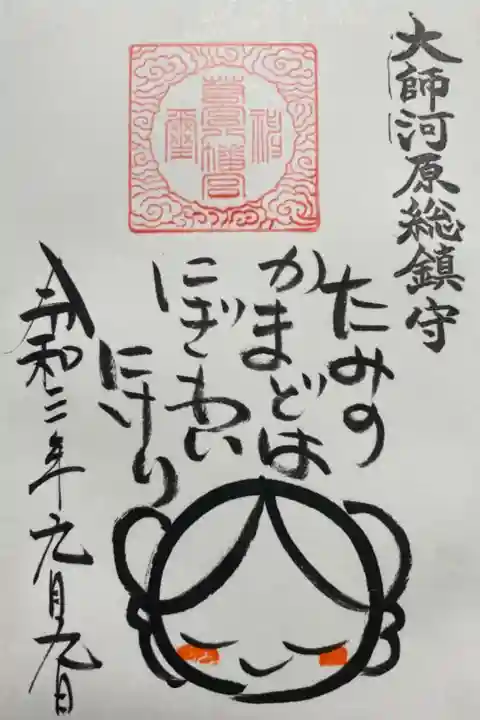 大師河原総鎮守
たみの
かまどは
にぎわい
にけり
令和三年九月九日